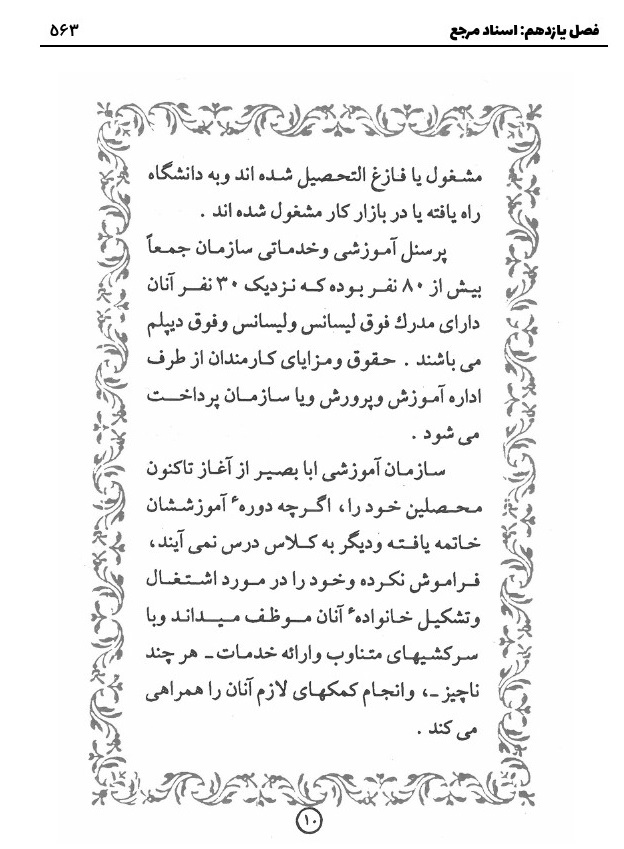 فصل یازدهم: اسناد مرجع
۵۶۳
مشغول یا فازغ التحصیل شده اند وبه دانشگاه
راه یافته یا در بازار کار مشغول شده اند .
پرسنل آموزشی وخدماتی سازمان جمعاً
بیش از ۸۰ نفر بوده که نزدیک ۳۰ نفر آنان
دارای مدرك فوق لیسانس ولیسانس وفوق دیپلم
می باشند . حقوق ومزایای کارمندان از طرف
اداره آموزش وپرورش ویا سازمان پرداخت
می شود .
سازمان آموزشی ابا بصیر از آغاز تاکنون
محصلین خود را، اگرچه دورهٔ آموزششان
خاتمه یافته ودیگر به کلاس درس نمی آیند،
فراموش نکرده وخود را در مورد اشتغال
وتشکیل خانوادهٔ آنان موظف میداند وبا
سرکشیهای متناوب وارائه خدمات ـ هر چند
ناچیز ـ، وانجام کمکهای لازم آنان را همراهی
می کند .
۱۰